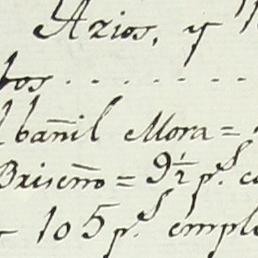 Azios, y
tos
bañil Mora =
Briseño = 9½ p.s
105 p.s emple